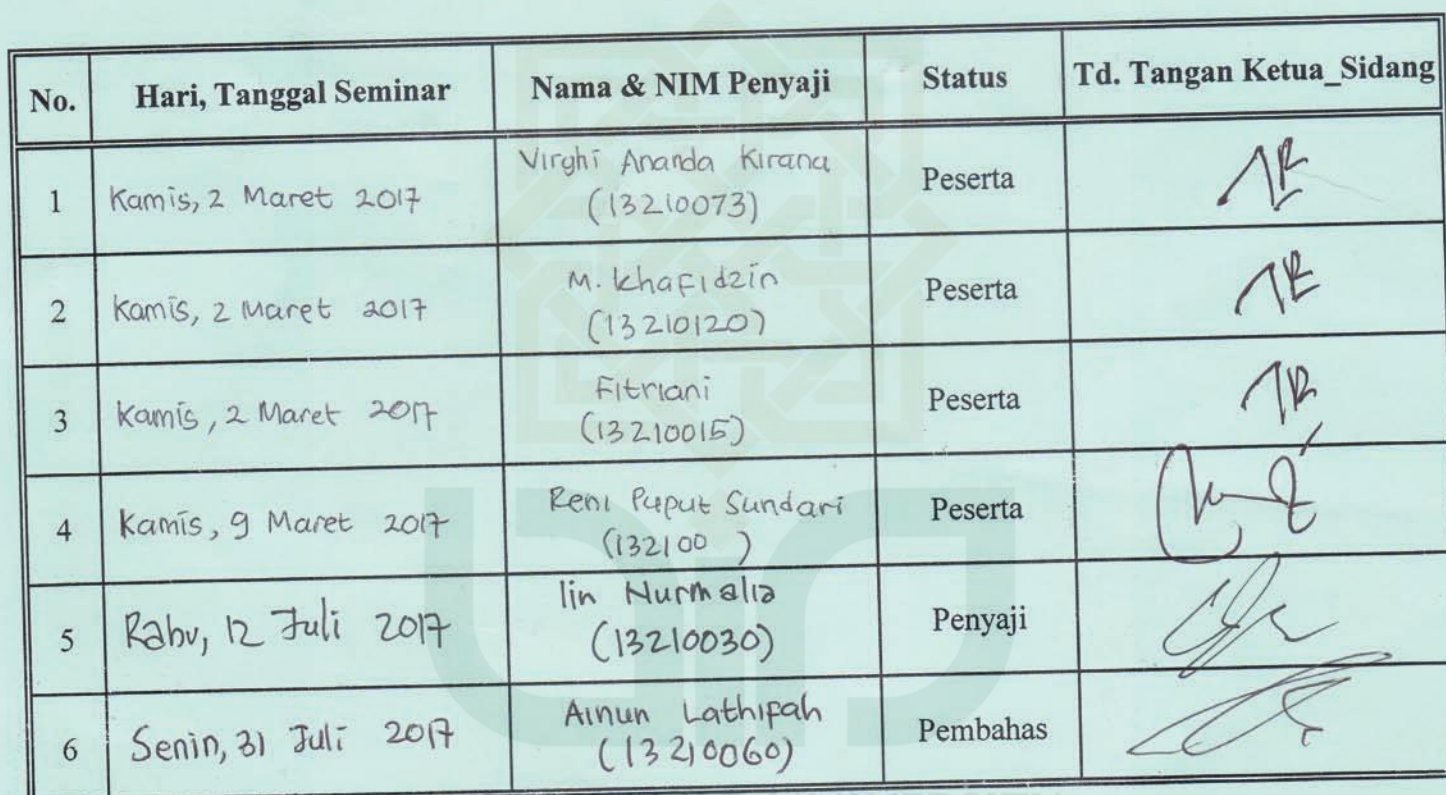 No. Hari, Tanggal Seminar Nama & NIM Penyaji Status Td. Tangan Ketua_Sidang
1 Kamis, 2 Maret 2017 Virghi Ananda Kirana (13210073) Peserta
2 Kamis, 2 Maret 2017 M. Khafidzin (13210120) Peserta
3 Kamis, 2 Maret 2017 Fitriani (13210015) Peserta
4 Kamis, 9 Maret 2017 Reni Puput Sundari (132100 ) Peserta
5 Rabu, 12 Juli 2017 Iin Nurmalia (13210030) Penyaji
6 Senin, 31 Juli 2017 Ainun Lathifah (13210060) Pembahas